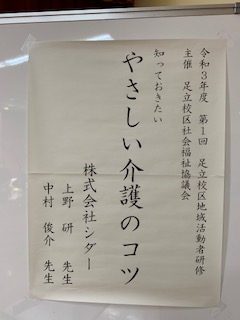 令和３年度　第１回　足立校区地域活動者研修
主催　足立校区社会福祉協議会
知っておきたい
やさしい介護のコツ
株式会社シダー
上野　研　先生
中村　俊介　先生